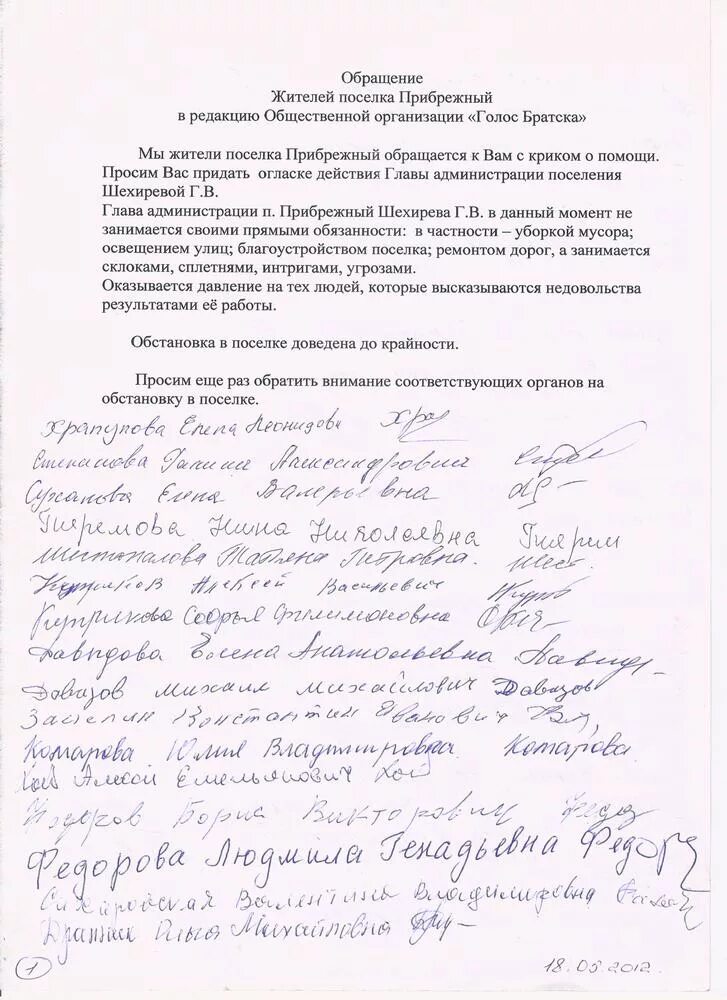 Обращение
Жителей поселка Прибрежный
в редакцию Общественной организации «Голос Братска»
Мы жители поселка Прибрежный обращается к Вам с криком о помощи.
Просим Вас придать огласке действия Главы администрации поселения
Шехиревой Г.В.
Глава администрации п. Прибрежный Шехирева Г.В. в данный момент не
занимается своими прямыми обязанности: в частности – уборкой мусора;
освещением улиц; благоустройством поселка; ремонтом дорог, а занимается
склоками, сплетнями, интригами, угрозами.
Оказывается давление на тех людей, которые высказываются недовольства
результатами её работы.
Обстановка в поселке доведена до крайности.
Просим еще раз обратить внимание соответствующих органов на
обстановку в поселке.
Храпунова Елена Леонидовна Хра
Степанова Галина Александровна
Суханова Елена Валерьевна
Нина Николаевна
Татьяна Петровна.
Куприков Алексей Васильевич
Куприкова Софья Филимоновна
Давыдова Елена Анатольевна Давид
Михаил Михайлович
Константин Иванович
Комарова Юлия Владимировна Комарова
Алексей Емельянович
Федоров Борис Викторович Федо
Федорова Людмила Генадьевна Федор
Валентина Владимировна
Ольга Михайловна
1
18.05.2012.